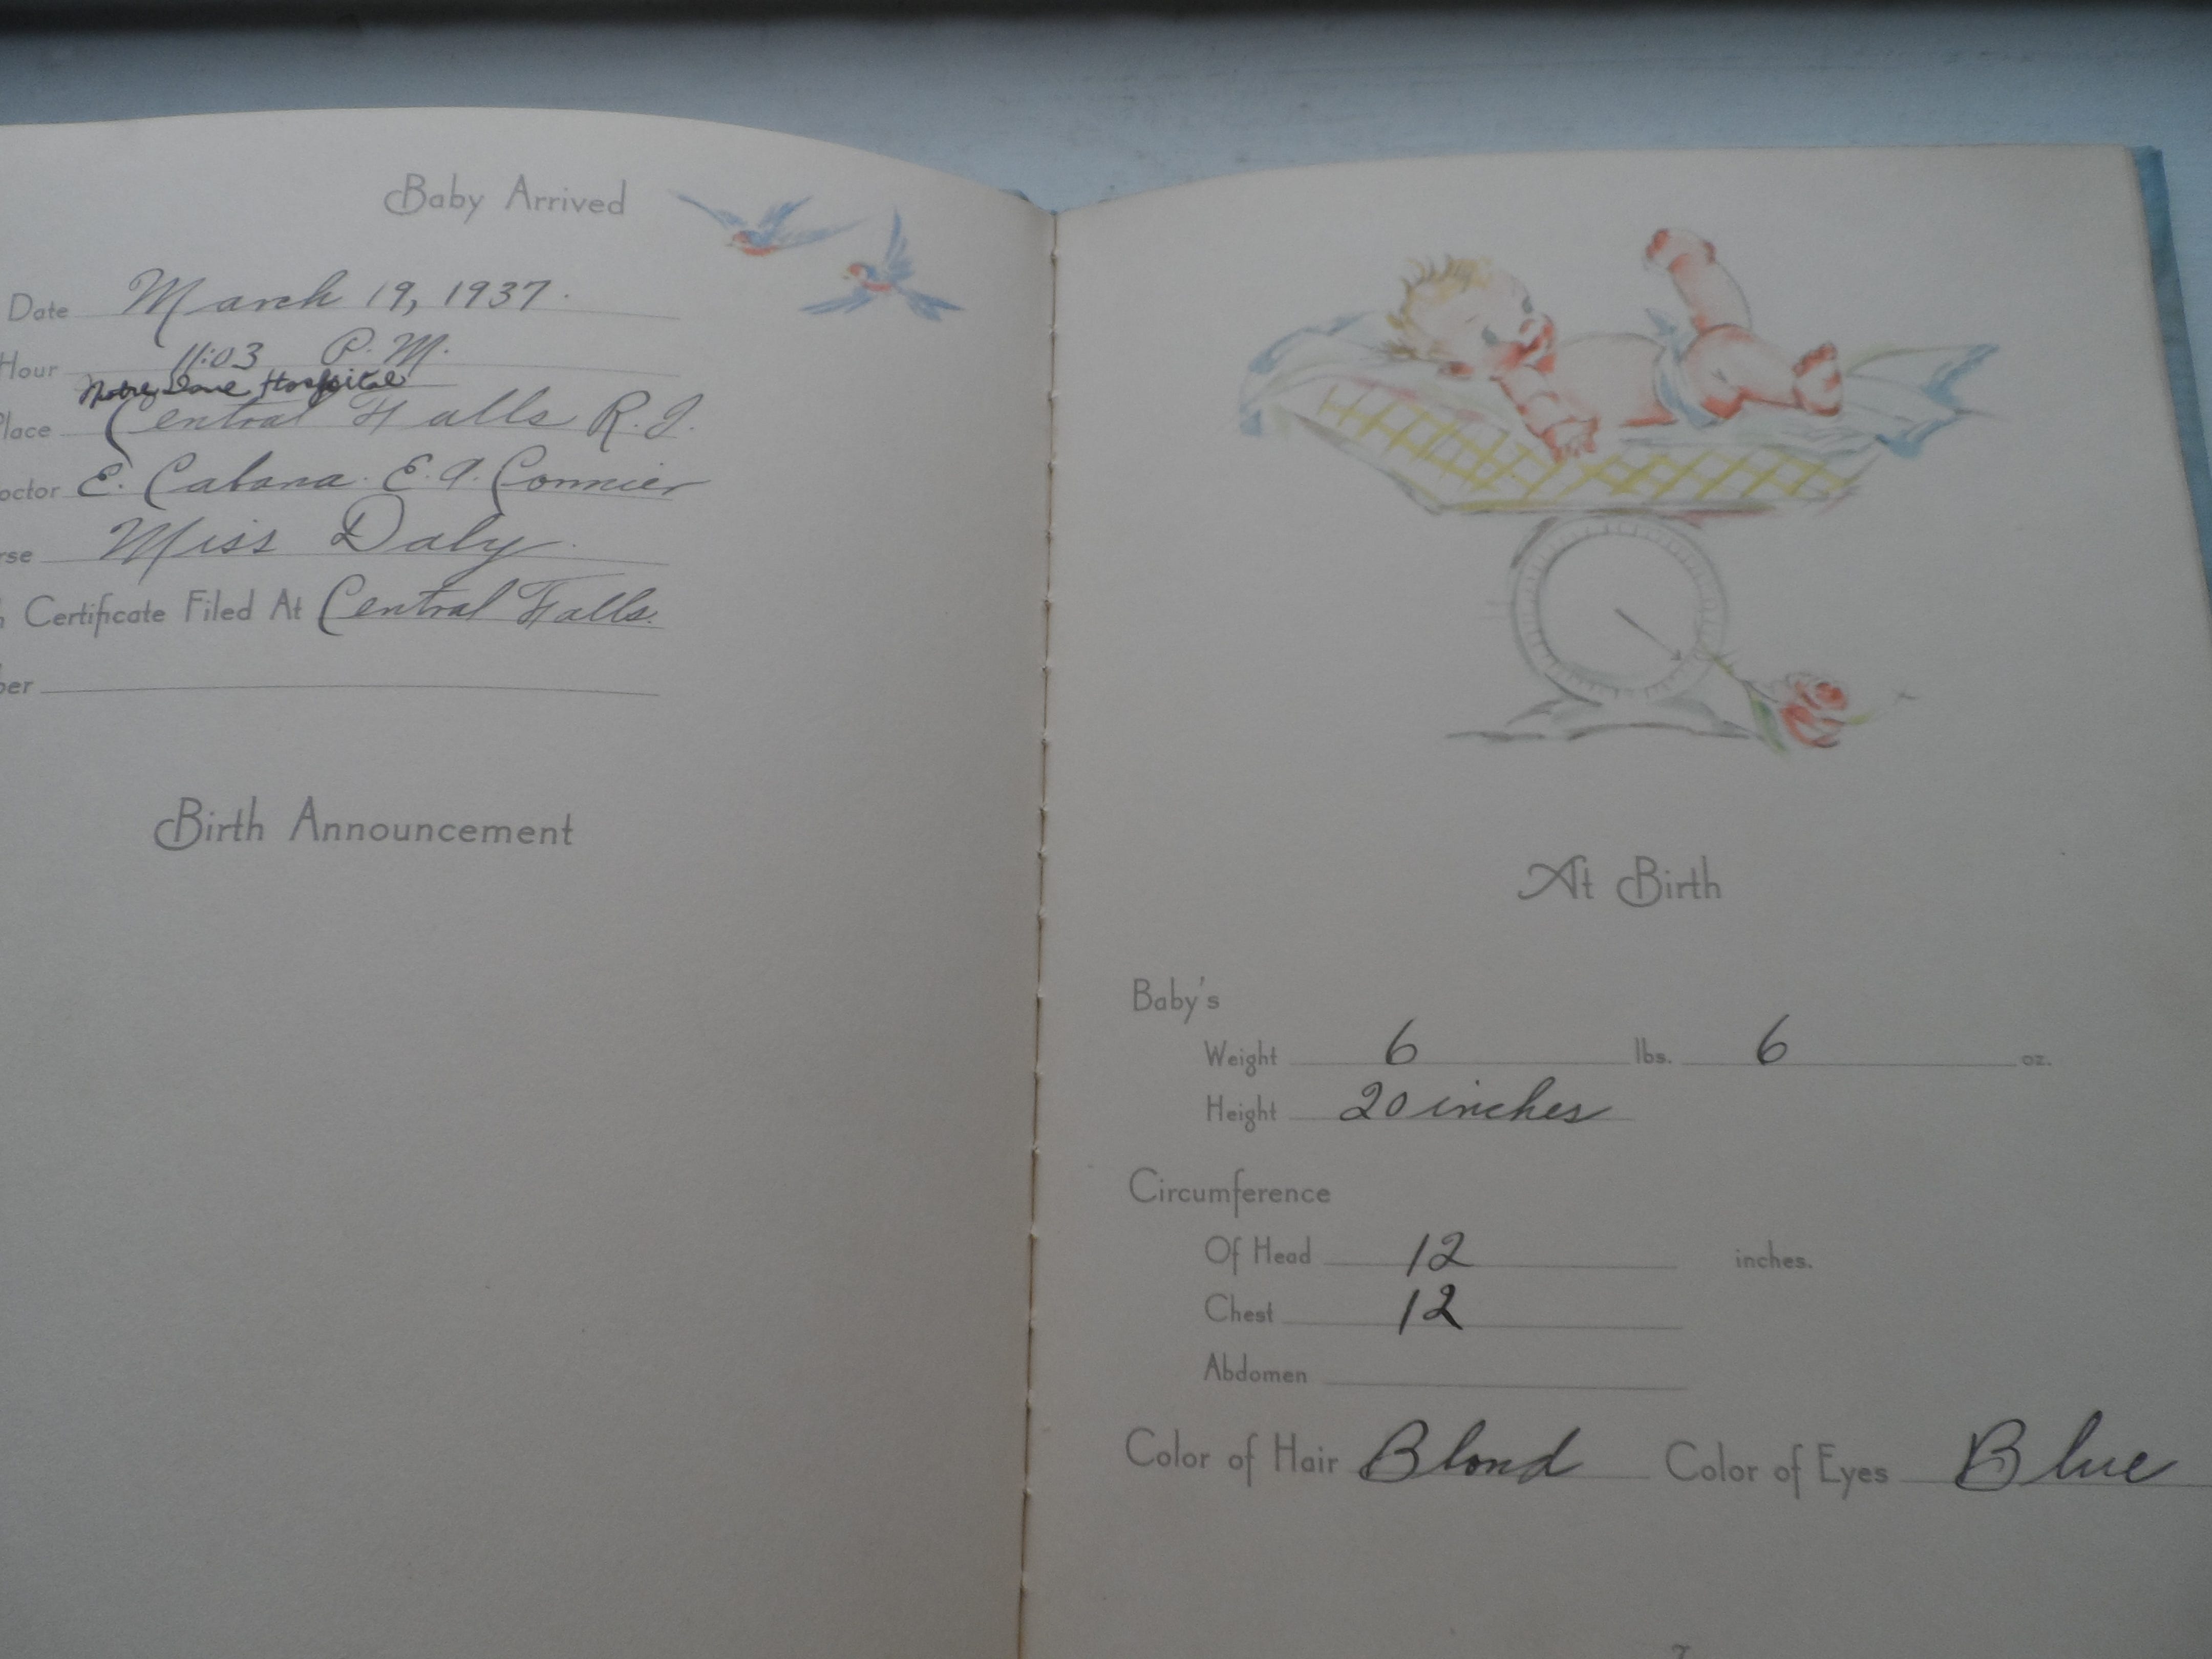 Baby Arrived
Date March 19, 1937.
Hour 11:03 P. M.
Notre Dame Hospital
Place Central Falls R.I.
octor E. Cabana. E. A. Cormier
rse Miss Daly.
h Certificate Filed At Central Falls.
ber
Birth Announcement
At Birth
Baby's
Weight 6 lbs. 6 oz.
Height 20 inches
Circumference
Of Head 12 inches.
Chest 12
Abdomen
Color of Hair Blond Color of Eyes Blue